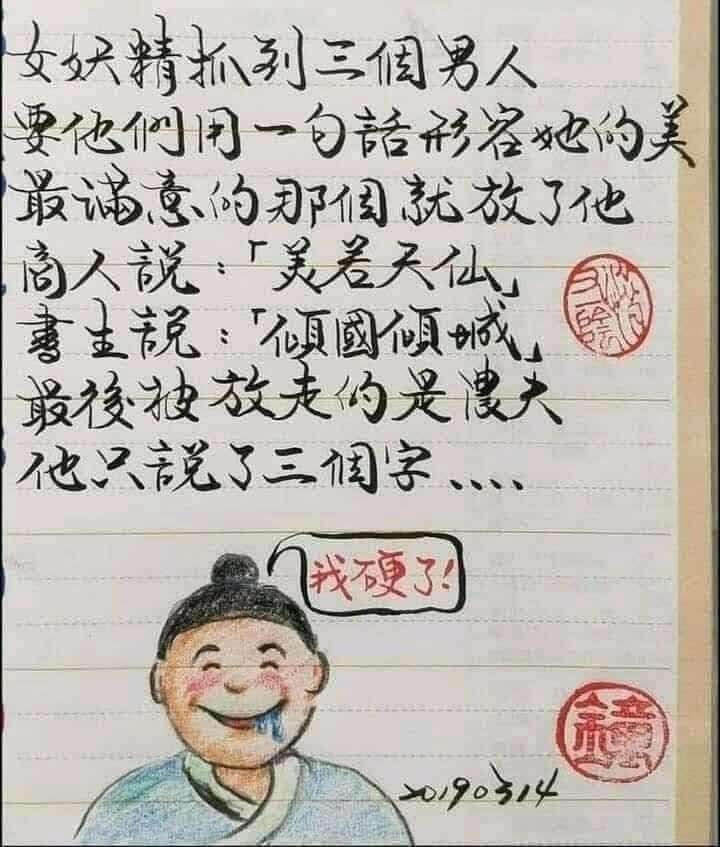 女妖精抓到三個男人
要他們用一句話形容她的美
最滿意的那個就放了他
商人說：「美若天仙」
書生說：「傾國傾城」
最後被放走的是農夫
他只說了三個字....
我硬了!
鐘
20190314